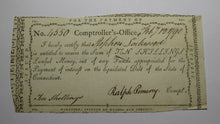 FOR THE PAYMENT OF
No. 4550 Comptroller's-Office,
I hereby certify that Stephen Lockwood
is entitled to receive the Sum of TEN SHILLINGS
Lawful Money, out of any Funds appropriated for the
Payment of interest on the Liquidated Debts of the State of
Connecticut.
Ten Shillings Ralph Pomeroy Compt.